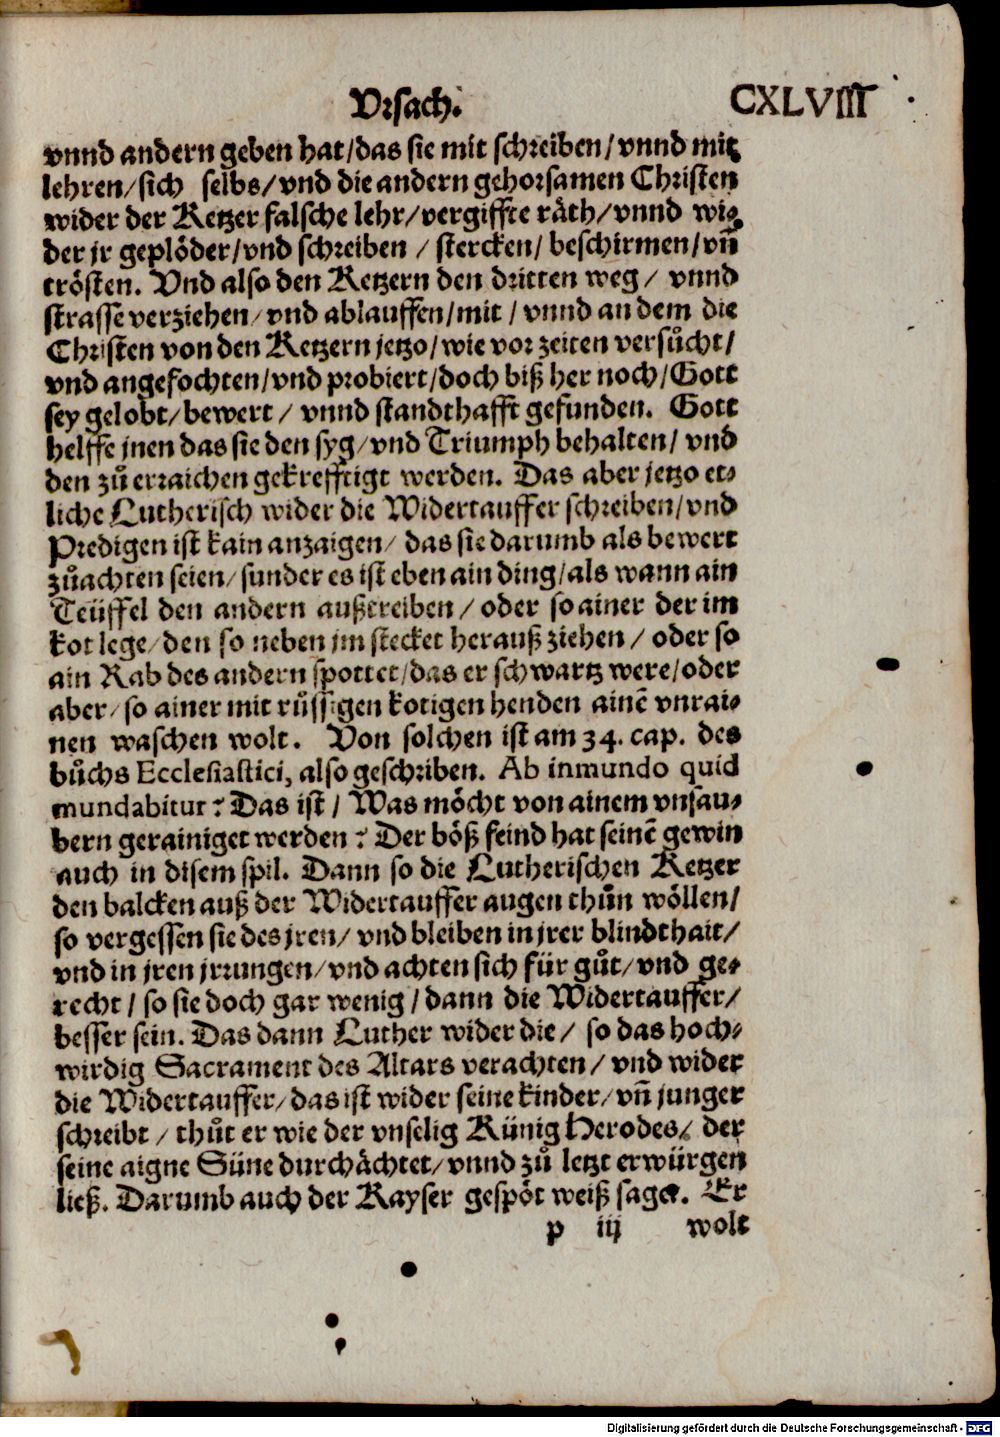 Vrsach. CXLVIII
vnnd andern geben hat/das sie mit schreiben/vnnd mit
lehren/sich selbs/vnd die andern gehorsamen Christen
wider der Ketzer falsche lehr/vergiffte räth/vnnd wi⸗
der jr geplöder/vnd schreiben / stercken/ beschirmen/vñ
trösten. Vnd also den Ketzern den dritten weg/ vnnd
strasse verziehen/vnd ablauffen/mit / vnnd an dem die
Christen von den Ketzern jetzo/wie vor zeiten versůcht/
vnd angefochten/vnd probiert/doch biß her noch/Gott
sey gelobt/bewert/ vnnd standthafft gefunden. Gott
helffe jnen das sie den syg/vnd Triumph behalten/ vnd
den zů erraichen gekrefftigt werden. Das aber jetzo et⸗
liche Lutherisch wider die Widertauffer schreiben/vnd
Predigen ist kain anzaigen/ das sie darumb als bewert
zůachten seien/sunder es ist eben ain ding/als wann ain
Teüffel den andern außtreiben/ oder so ainer der im
kot lege/den so neben jm stecket herauß ziehen/ oder so
ain Rab des andern spottet/das er schwartz were/oder
aber/so ainer mit růssigen kotigen henden ainē vnrai⸗
nen waschen wolt. Von solchen ist am 34. cap. des
bůchs Ecclesiastici, also geschriben. Ab inmundo quid
mundabitur? Das ist/ Was möcht von ainem vnsau⸗
bern gerainiget werden? Der böß feind hat seinē gewin
auch in disem spil. Dann so die Lutherischen Ketzer
den balcken auß der Widertauffer augen thůn wöllen/
so vergessen sie des jren/ vnd bleiben in jrer blindthait/
vnd in jren jrrungen/vnd achten sich für gůt/vnd ge⸗
recht/so sie doch gar wenig/dann die Widertauffer/
besser sein. Das dann Luther wider die/ so das hoch⸗
wirdig Sacrament des Altars verachten/ vnd wider
die Widertauffer/das ist wider seine kinder/vñ junger
schreibt/ thůt er wie der vnselig Künig Herodes/ der
seine aigne Süne durchächtet/vnnd zů letzt erwürgen
ließ. Darumb auch der Kayser gespöt weiß saget. Er
p iij wolt
Digitalisierung gefördert durch die Deutsche Forschungsgemeinschaft - DFG